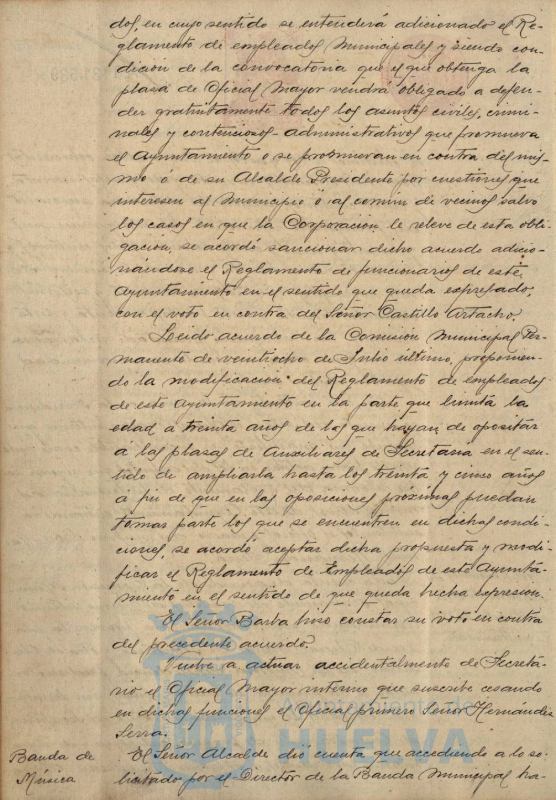 dos, en cuyo sentido se entenderá adicionado el Re-
glamento de empleados Municipales y siendo con-
dición de la convocatoria que el que obtenga la
plasa de Oficial Mayor vendrá obligado a defen-
der gratuitamente todos los asuntos civiles, crimi-
nales y contenciosos-administrativos que promueva
el Ayuntamiento o se promovieran en contra del mis-
mo ó de su Alcalde Presidente por cuestiones que
interesen al Municipio o al comun de vecinos salvo
los casos en que la Corporacion le releve de esta obli-
gacion, se acordó sancionar dicho acuerdo adicio-
nándose el Reglamento de funcionarios de este
Ayuntamiento en el sentido que queda expresado,
con el voto en contra del Señor Castillo Artacho.
Leido acuerdo de la Comision Municipal Per-
manente de veintiocho de Julio último, proponien-
do la modificacion del Reglamento de empleados
de este Ayuntamiento en la parte que limita la
edad a treinta años de los que hayan de opositar
á las plasas de Auxiliares de Secretaria en el sen-
tido de ampliarla hasta los treinta y cinco años
á fin de que en las oposiciones proximas puedan
tomar parte los que se encuentren en dichas condi-
ciones, se acordó aceptar dicha propuesta y modi-
ficar el Reglamento de Empleados de este Ayunta-
miento en el sentido de que queda hecha expresion.
El Señor Barba hiso constar su voto en contra
del precedente acuerdo.
Vuelve a actuar accidentalmente de Secreta-
rio el Oficial Mayor interino que suscribe cesando
en dichas funciones el Oficial primero Señor Hernández
Serra.
Banda de
Música
El Señor Alcalde dió cuenta que accediendo a lo so-
licitado por el Director de la Banda Municipal ha-
HUELVA